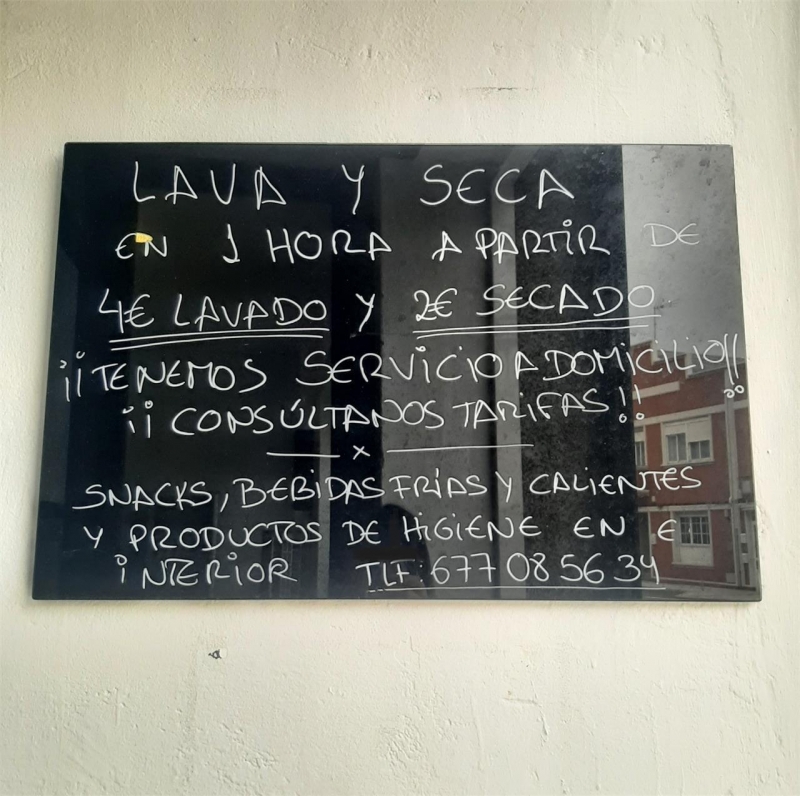 LAVA Y SECA
EN 1 HORA A PARTIR DE
4€ LAVADO Y 2€ SECADO
¡¡TENEMOS SERVICIO A DOMICILIO!!
¡¡CONSÚLTANOS TARIFAS!!
x
SNACKS, BEBIDAS FRÍAS Y CALIENTES
Y PRODUCTOS DE HIGIENE EN E
INTERIOR TLF: 677 08 56 34